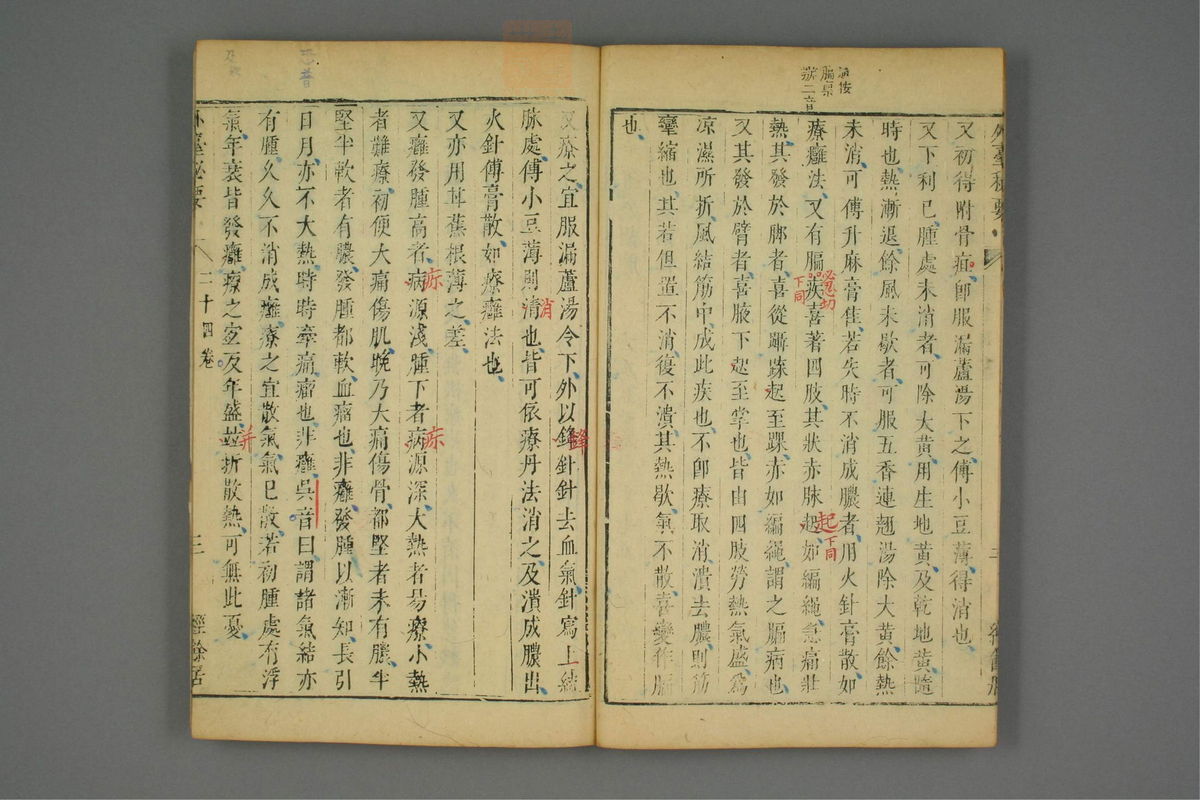 又初得附骨疽卽服漏蘆湯下之傅小豆薄得消也
又下利已腫處未消者可除大黃用生地黃及乾地黃隨
時也熱漸退餘風未歇者可服五香連翹湯除大黃餘熱
未消可傅升麻膏隹若失時不消成膿者用火針膏散如
療癰法又有㿂疾喜著四肢其狀赤脉起如編繩急痛壯
熱其發於脚者喜從踹跌起至踝赤如編繩謂之㿂病也
又其發於臂者喜腋下起至掌也皆由四肢勞熱氣盛爲
凉濕所折風結筋中成此疾也不卽療取消潰去膿則筋
攣縮也其若但置不消復不潰其熱歇氣不散喜變作
也
又療之宜服漏蘆湯令下外以鋒針針去血氣針寫上結
脉處傅小豆薄則消也皆可依療丹法消之及潰成膿出
火針傅膏散如療癰法也
又亦用芉蕉根薄之差
又癰發腫高者病源淺腫下者病源深大熱者易療小熱
者難療初便大痛傷肌晚乃大痛傷骨都堅者未有膿半
堅半軟者有膿發腫都軟血瘤也非癰發腫以漸知長引
日月亦不大熱時時牽痛瘤也非癰吳音曰謂諸氣結亦
有腫久久不消成癰療之宜散氣氣已散若初腫處有浮
氣年衰皆發癰療之宜及年盛並折散熱可無此憂
外臺秘要
二十四卷
三
經餘居
謹按
㿂
二音
必忍切
下同
起
下同
鋒
消
疢
疢
并